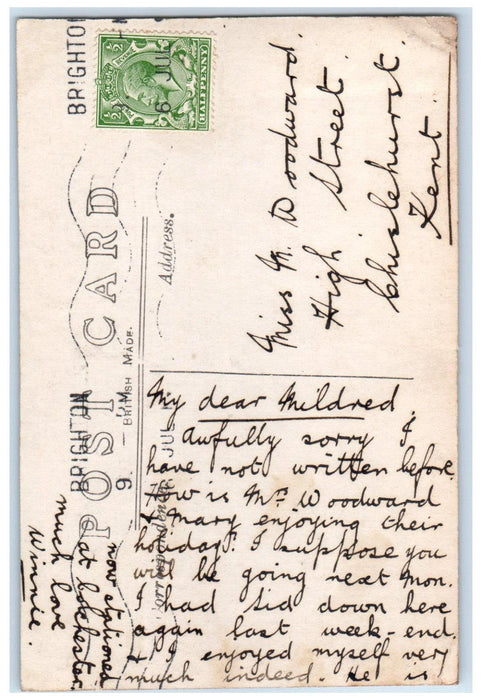 POST CARD
BRITISH MADE.
Correspondence.
Address.
½ ½
HALFPENNY
BRIGHTON
6 JUL
BRIGHTON
9.
JUL
Miss M. Woodward.
High Street.
Chislehurst.
Kent.
My dear Mildred,
Awfully sorry I
have not written before.
How is Mrs Woodward
& Mary enjoying their
holiday? I suppose you
will be going next Mon.
I had Sid down here
again last week-end.
& I enjoyed myself very
much indeed. He is
now stationed
at Colchester.
much love
Winnie.